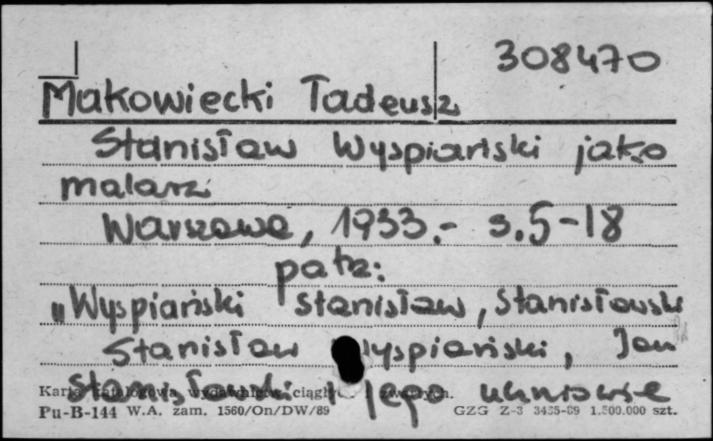 308470
Makowiecki Tadeusz
Stanisław Wyspiański jako
malarz
Warszawa, 1933.- s.5-18
patrz:
"Wyspiański Stanisław, Stanisławski
Stanisław Wyspiański, Jan
Stanisławski i jego uczniowie
Karta katalogowa wydawnictw ciągłych i zwartych.
Pu-B-144 W.A. zam. 1560/On/DW/89 GZG Z-3 3435-89 1.500.000 szt.